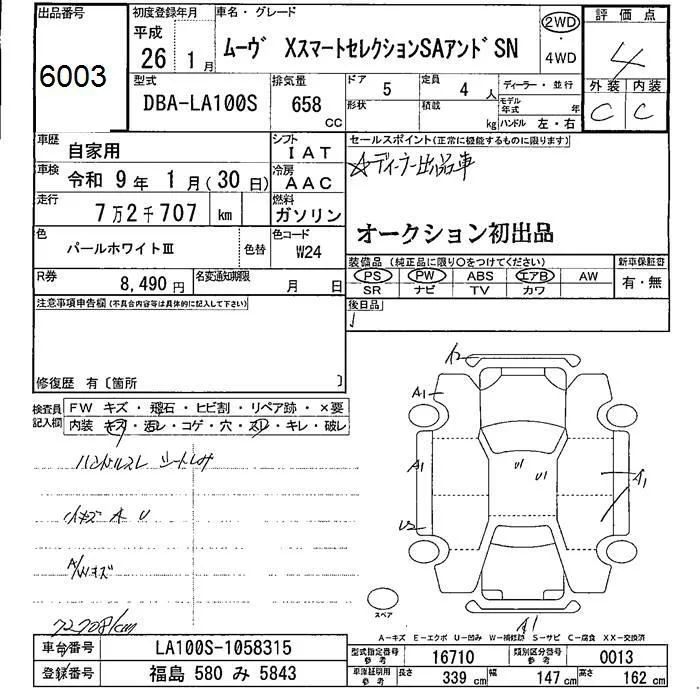 出品番号 6003
初度登録年月 平成 26 1月
車名・グレード ムーヴ XスマートセレクションSAアンドSN
2WD・4WD
評価点 4
外装 C 内装 C
型式 DBA-LA100S
排気量 658 CC
ドア 5 形状
定員 4 人 積載 kg
ディーラー・並行
モデル年式 年
ハンドル 左・右
車歴 自家用
シフト IAT
車検 令和 9年 1月(30日)
冷房 AAC
走行 7万2千707 km
燃料 ガソリン
色 パールホワイトⅢ 色替
色コード W24
R券 8,490円
名変通知期限 月 日
セールスポイント(正常に機能するものに限ります)
☆ディーラー出品車
オークション初出品
装備品 (純正品に限り○をつけてください)
新車保証書 有・無
PS PW ABS エアB AW
SR ナビ TV カワ
後日品
注意事項申告欄(不具合内容等は具体的に記入して下さい)
修復歴 有〔箇所 〕
検査員記入欄
FW キズ・飛石・ヒビ割・リペア跡・×要
内装 キズ・汚レ・コゲ・穴・スレ・キレ・破レ
ハンドルスレ シートしみ
小キズ A U
A/Wキズ
72708km
A2
A1
A1
U1
U1
A1
U2
A1
スペア
A-キズ E-エクボ U-凹み W-補修跡 S-サビ C-腐食 XX-交換済
車台番号 LA100S-1058315
登録番号 福島 580 み 5843
型式指定番号 参考 16710
類別区分番号 参考 0013
車庫証明用 参考 長さ 339 cm 幅 147 cm 高さ 162 cm